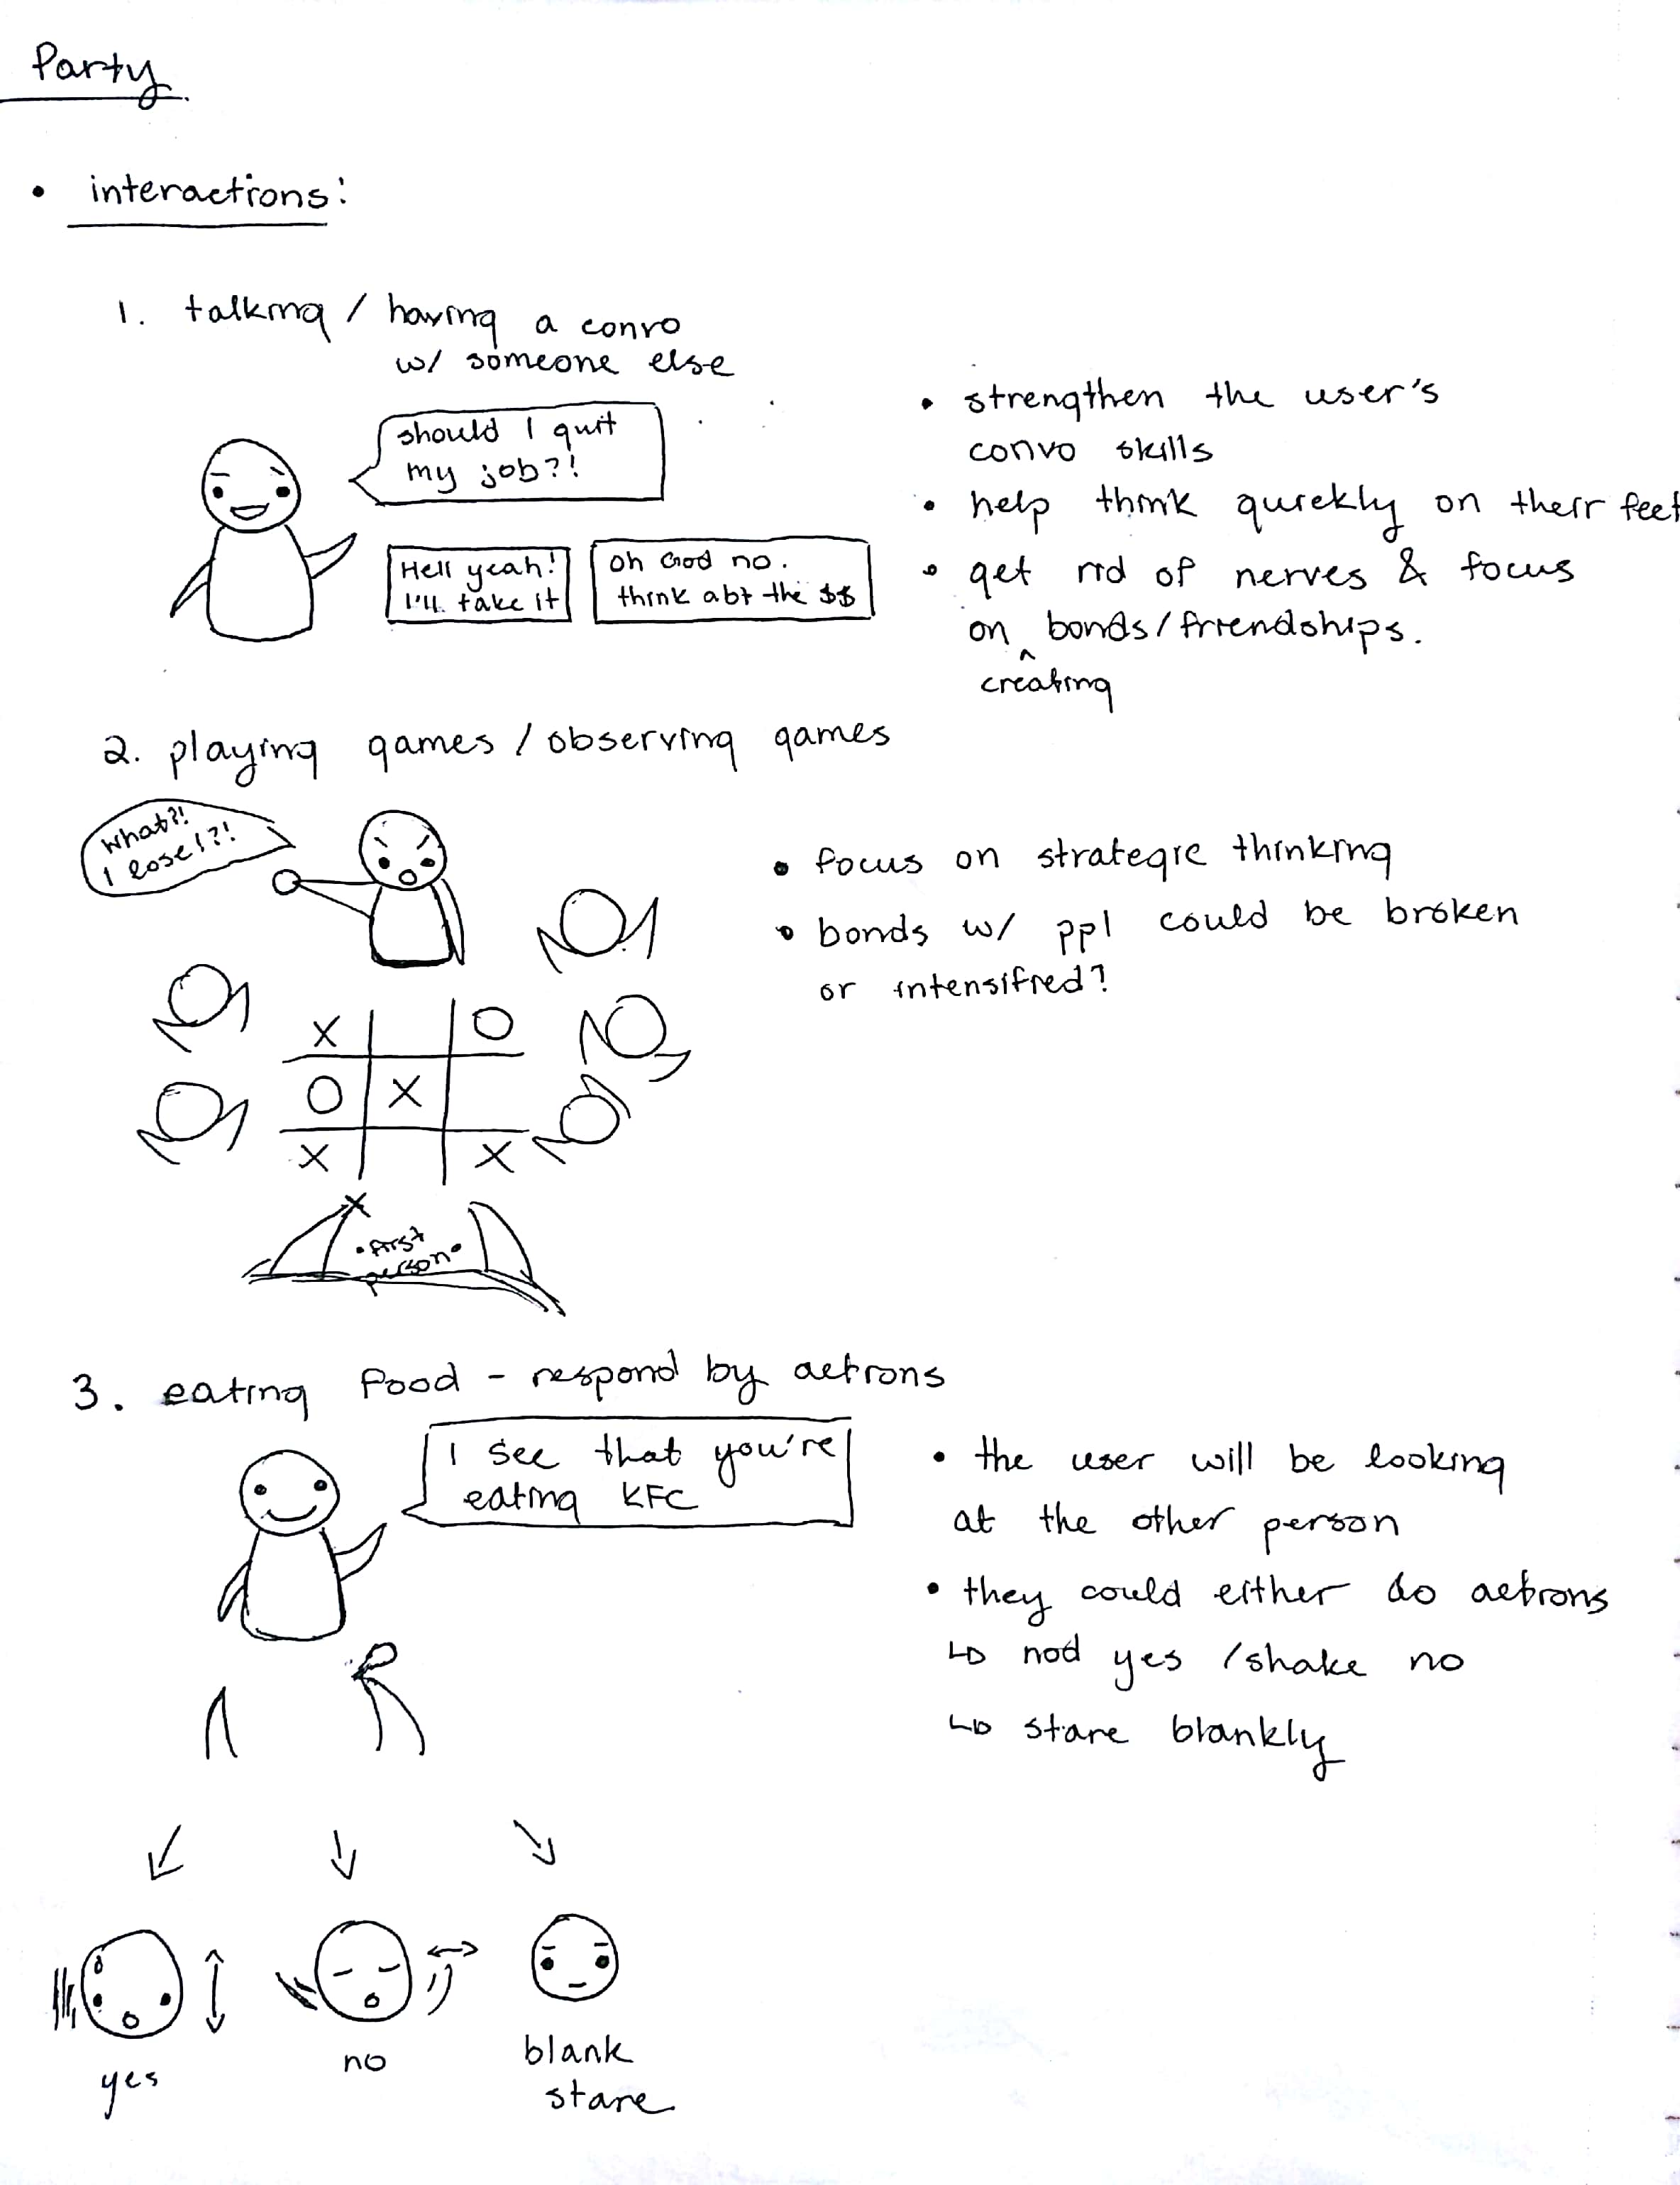 Party
• interactions:
1. talking / having a convo
w/ someone else
should I quit
my job?!
Hell yeah!
I'll take it
oh God no.
think abt the $$
• strengthen the user's
convo skills
• help think quickly on their feet
• get rid of nerves & focus
on ^ bonds/friendships.
creating
2. playing games / observing games
What?!
I lose!?!
• focus on strategic thinking
• bonds w/ ppl could be broken
or intensified?
X O
O X
X X
X
• first
person •
3. eating food - respond by actions
I see that you're
eating KFC
• the user will be looking
at the other person
• they could either do actions
↳ nod yes / shake no
↳ stare blankly
yes
no
blank
stare